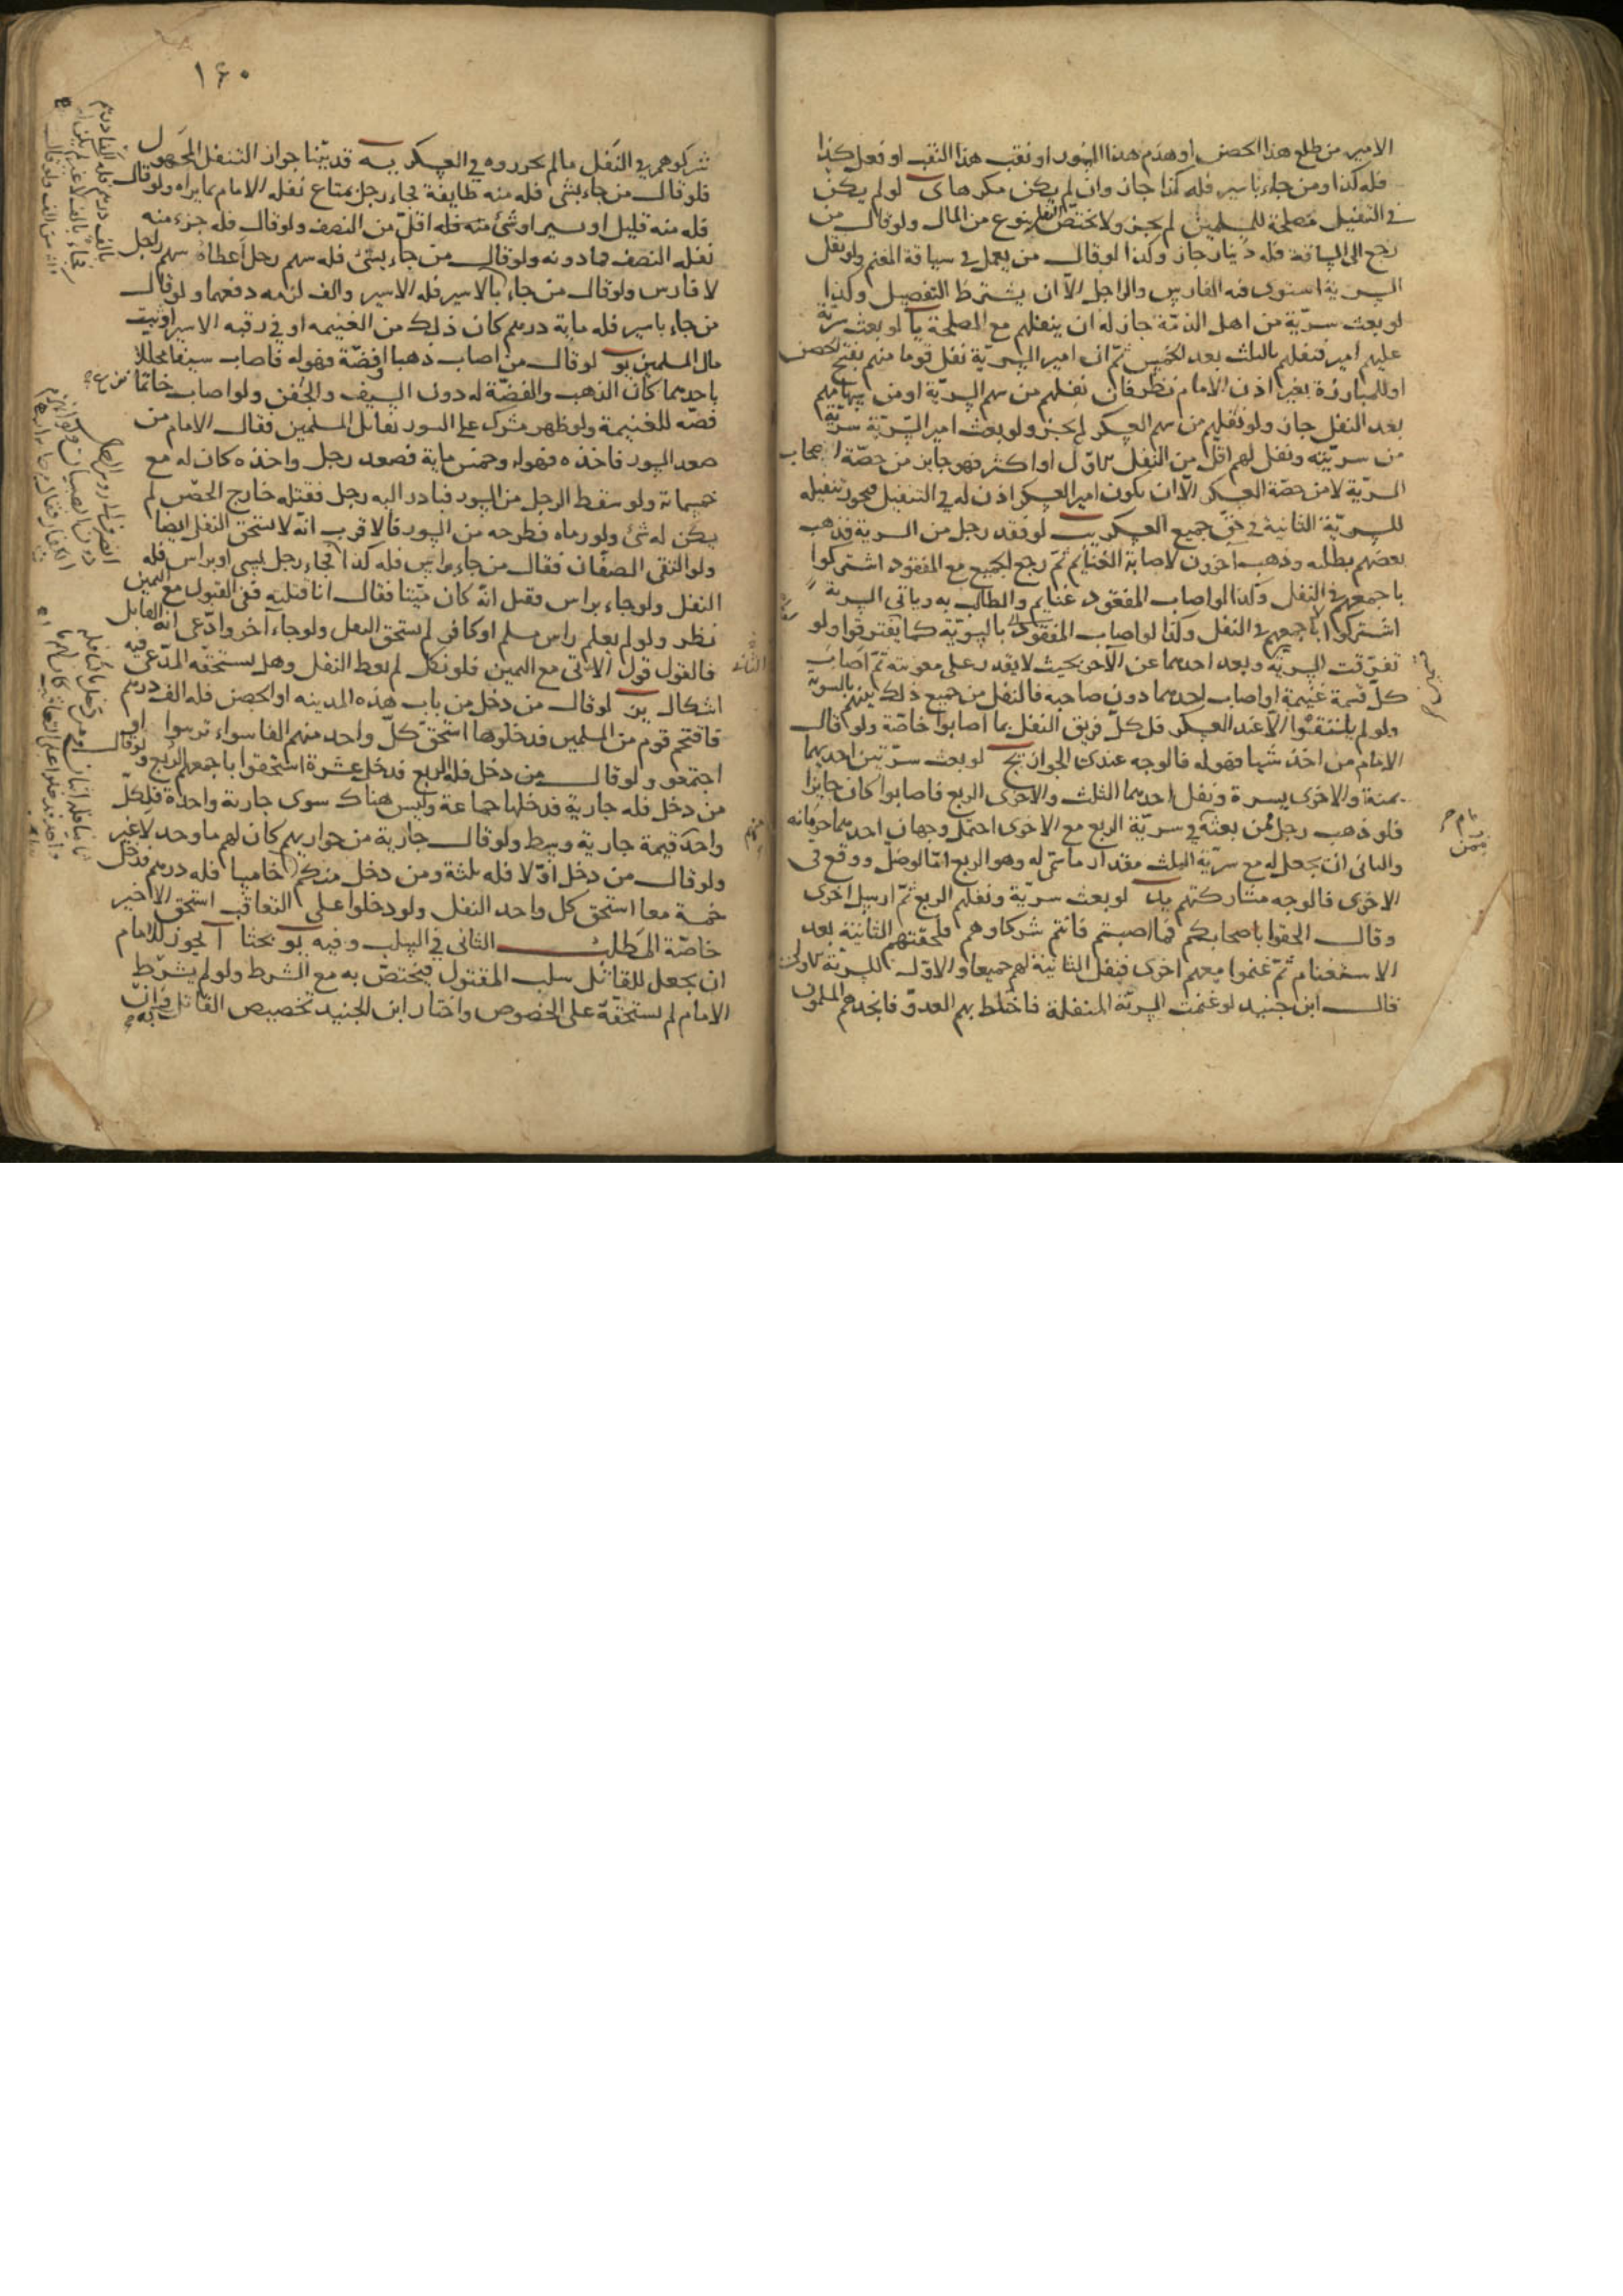 الامير من طلع هذا الحصن او هدم هذا السور او نقب هذا النقب او فعل كذا
فله كذا ومن جاء باسير فله كذا جاز وان لم يكن مكرها ى لو لم يكن
في التنفيل مصلحة للمسلمين لم يجز ولا يختص النفل بنوع من المال ولو قال من
رجع الى الساقة فله دينار جاز وكذا لو قال من يعمل في سياقة المغنم ولو نفل
السرية استوى فيه الفارس والراجل الا ان يشترط التفضيل وكذا
لو بعث سرية من اهل الذمة جاز له ان ينفلهم مع المصلحة يا لو بعث سرية
عليهم امير فنفلهم بالثلث بعد الخمس ثم ان امير السرية نفل قوما منهم بفتح الحصن
او للمبارزة بغير اذن الامام نظر فان نفلهم من سهم السرية او من سهامهم
بعد النفل جاز ولو نفلهم من سهم العسكر لم يجز ولو بعث امير السرية سرية
من سريته ونفل لهم اقل من النفل الاول او اكثر فهو جايز من حصة اصحاب
السرية لا من حصة العسكر الا ان يكون امير العسكر اذن له في التنفيل فيجوز تنفيله
للسرية الثانية في حق جميع العسكر يب لو فقد رجل من السرية فذهب
بعضهم بطلبه وذهب اخرون لاصابة الغنايم ثم رجع الجميع مع المفقود اشتركوا
باجمعهم في النفل وكذا لو اصاب المفقود غنايم والطالب به وباقي السرية
اشتركوا باجمعهم في النفل وكذا لو اصاب المفقود بالسوية كما يفترقوا ولو
تفرقت السرية وبعد احدهما عن الآخر بحيث لا يقدر على معونته ثم اصاب
كل قسمة غنيمة او اصاب احدهما دون صاحبه فالنفل من جميع ذلك بينهم بالسوية
ولو لم يلتقوا الا عند العسكر فلكل فريق النفل بما اصابوا خاصة ولو قال
الامام من اخذ شيا فهو له فالوجه عندى الجواز يج لو بعث سريتين احديهما
يمنة والاخرى يسرة ونفل احديهما الثلث والاخرى الربع فاصابوا كان جايزا
فلو ذهب رجل ممن بعثه في سرية الربع مع الاخرى احتمل وجهان احدهما حرمانه
والثانى ان يجعل له مع سرية الثلث مقدار ما سمى له وهو الربع اما لو ضل ووقع في
الاخرى فالوجه مشاركتهم يد لو بعث سرية ونفلهم الربع ثم ارسل اخرى
وقال الحقوا باصحابكم فما اصبتم فانتم شركاوهم فلحقتهم الثانية بعد
الاستغنام ثم غنموا معهم اخرى فنفل الثانية لهم جميعا والاول للسرية الاولى
قال ابن جنيد لو غنمت السرية المنفلة فاختلط بهم العدو فانجدهم المسلمون
١٤٠
شركوهم في النفل ما لم يحرزوه في العسكر يه قد بينا جواز التنفل المجهول
فلو قال من جاء بشى فله منه طايفة فجاء رجل بمتاع نفله الامام بما يراه ولو قال
فله منه قليل او يسير او شئ منه فله اقل من النصف ولو قال فله جزء منه
نفله النصف فما دونه ولو قال من جاء بشئ فله سهم رجل اعطاه سهم راجل
لا فارس ولو قال من جاء بالاسير فله الاسير والف لزمه دفعهما ولو قال
من جاء باسير فله ماية درهم كان ذلك من الغنيمه او في رقبه الاسير او بيت
مال المسلمين يو لو قال من اصاب ذهبا او فضة فهو له فاصاب سيفا محلا
باحديهما كان الذهب والفضة له دون السيف والجفن ولو اصاب خاتما
فضه للغنيمة ولو ظهر مشرك على السور يقاتل المسلمين فقال الامام من
صعد السور فاخذه فهو له وخمس ماية فصعد رجل واخذه كان له مع
خمسماة ولو سقط الرجل من السور فبادر اليه رجل فقتله خارج الحصن لم
يكن له شئ ولو رماه فطرحه من السور فالاقرب انه لا يستحق النفل ايضا
ولو التقى الصفان فقال من جاء براس فله كذا فجاء رجل بسبي او براس فله
النفل ولو جاء براس فقيل انه كان ميتا فقال انا قتلته ففى القبول مع اليمين
نظر ولو لم يعلم راس مسلم او كافر لم يستحق النفل ولو جاء آخر وادعى انه القاتل
فالقول قول الآتى مع اليمين فلو نكل لم يعط النفل وهل يستحقه المدعى فيه
اشكال يز لو قال من دخل من باب هذه المدينه او الحصن فله الف درهم
فاقتحم قوم من المسلمين فدخلوها استحق كل واحد منهم الفا سواء ترتبوا او
اجتمعوا ولو قال من دخل فله الربع فدخل عشرة استحقوا باجمعهم الربع ولو قال
من دخل فله جارية فدخلها جماعة وليس هناك سوى جارية واحدة فلكل
واحد قيمة جارية وسط ولو قال جارية من جواريهم كان لهم ما وجد لا غير
ولو قال من دخل اولا فله ثلثة ومن دخل منكم خامسا فله درهم فدخل
خمسة معا استحق كل واحد النفل ولو دخلوا على التعاقب استحق الاخير
خاصة المطلب الثانى في السلب وفيه يو بحثا ا يجوز للامام
ان يجعل للقاتل سلب المقتول فيختص به مع الشرط ولو لم يشرط
الامام لم يستحقه على الخصوص واختار ابن الجنيد تخصيص القاتل به